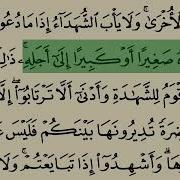 ٱلْأُخْرَىٰ ۚ وَلَا يَأْبَ ٱلشُّهَدَآءُ إِذَا مَا دُعُو
هُ صَغِيرًا أَوْ كَبِيرًا إِلَىٰٓ أَجَلِهِۦ ۚ ذَٰلِ
قْوَمُ لِلشَّهَٰدَةِ وَأَدْنَىٰٓ أَلَّا تَرْتَابُوٓا۟ ۖ إِلَّ
ضِرَةً تُدِيرُونَهَا بَيْنَكُمْ فَلَيْسَ
هَا ۗ وَأَشْهِدُوٓا۟ إِذَا تَبَايَعْتُمْ ۚ وَلَا